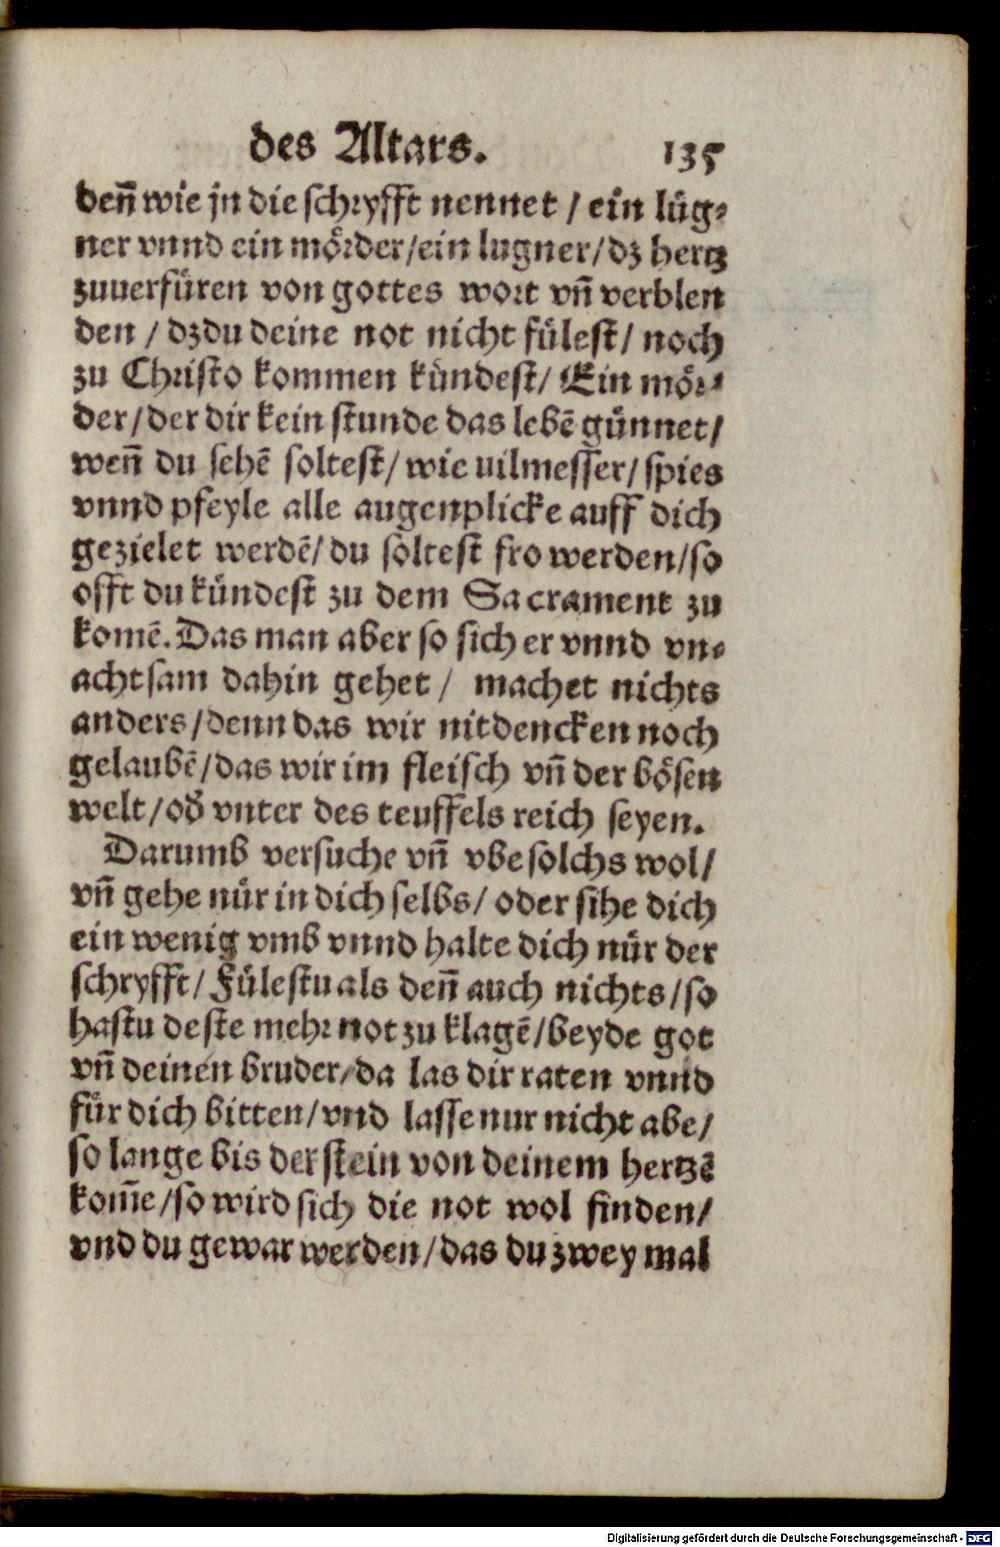 des Altars. 135
deñ wie jn die schryfft nennet / ein lüg⸗
ner vnnd ein mörder/ein lugner/dz hertz
zuuerfüren von gottes wort vñ verblen
den / dz du deine not nicht fülest/ noch
zu Christo kommen kündest/ Ein mör⸗
der/der dir kein stunde das lebē günnet/
weñ du sehē soltest/wie uilmesser/spies
vnnd pfeyle alle augenplicke auff dich
gezielet werdē/du soltest fro werden/so
offt du kündest zu dem Sacrament zu
komē. Das man aber so sich er vnnd vn⸗
achtsam dahin gehet / machet nichts
anders/denn das wir nit dencken noch
gelaubē/das wir im fleisch vñ der bösen
welt/oð vnter des teuffels reich seyen.
Darumb versuche vñ vbe solchs wol/
vñ gehe nür in dich selbs/ oder sihe dich
ein wenig vmb vnnd halte dich nür der
schryfft/Fülestu als deñ auch nichts/so
hastu deste mehr not zu klagē/beyde got
vñ deinen bruder/da las dir raten vnnd
für dich bitten/vnd lasse nur nicht abe/
so lange bis der stein von deinem hertzē
kom̄e/so wird sich die not wol finden/
vnd du gewar werden/das du zwey mal
Digitalisierung gefördert durch die Deutsche Forschungsgemeinschaft - DFG